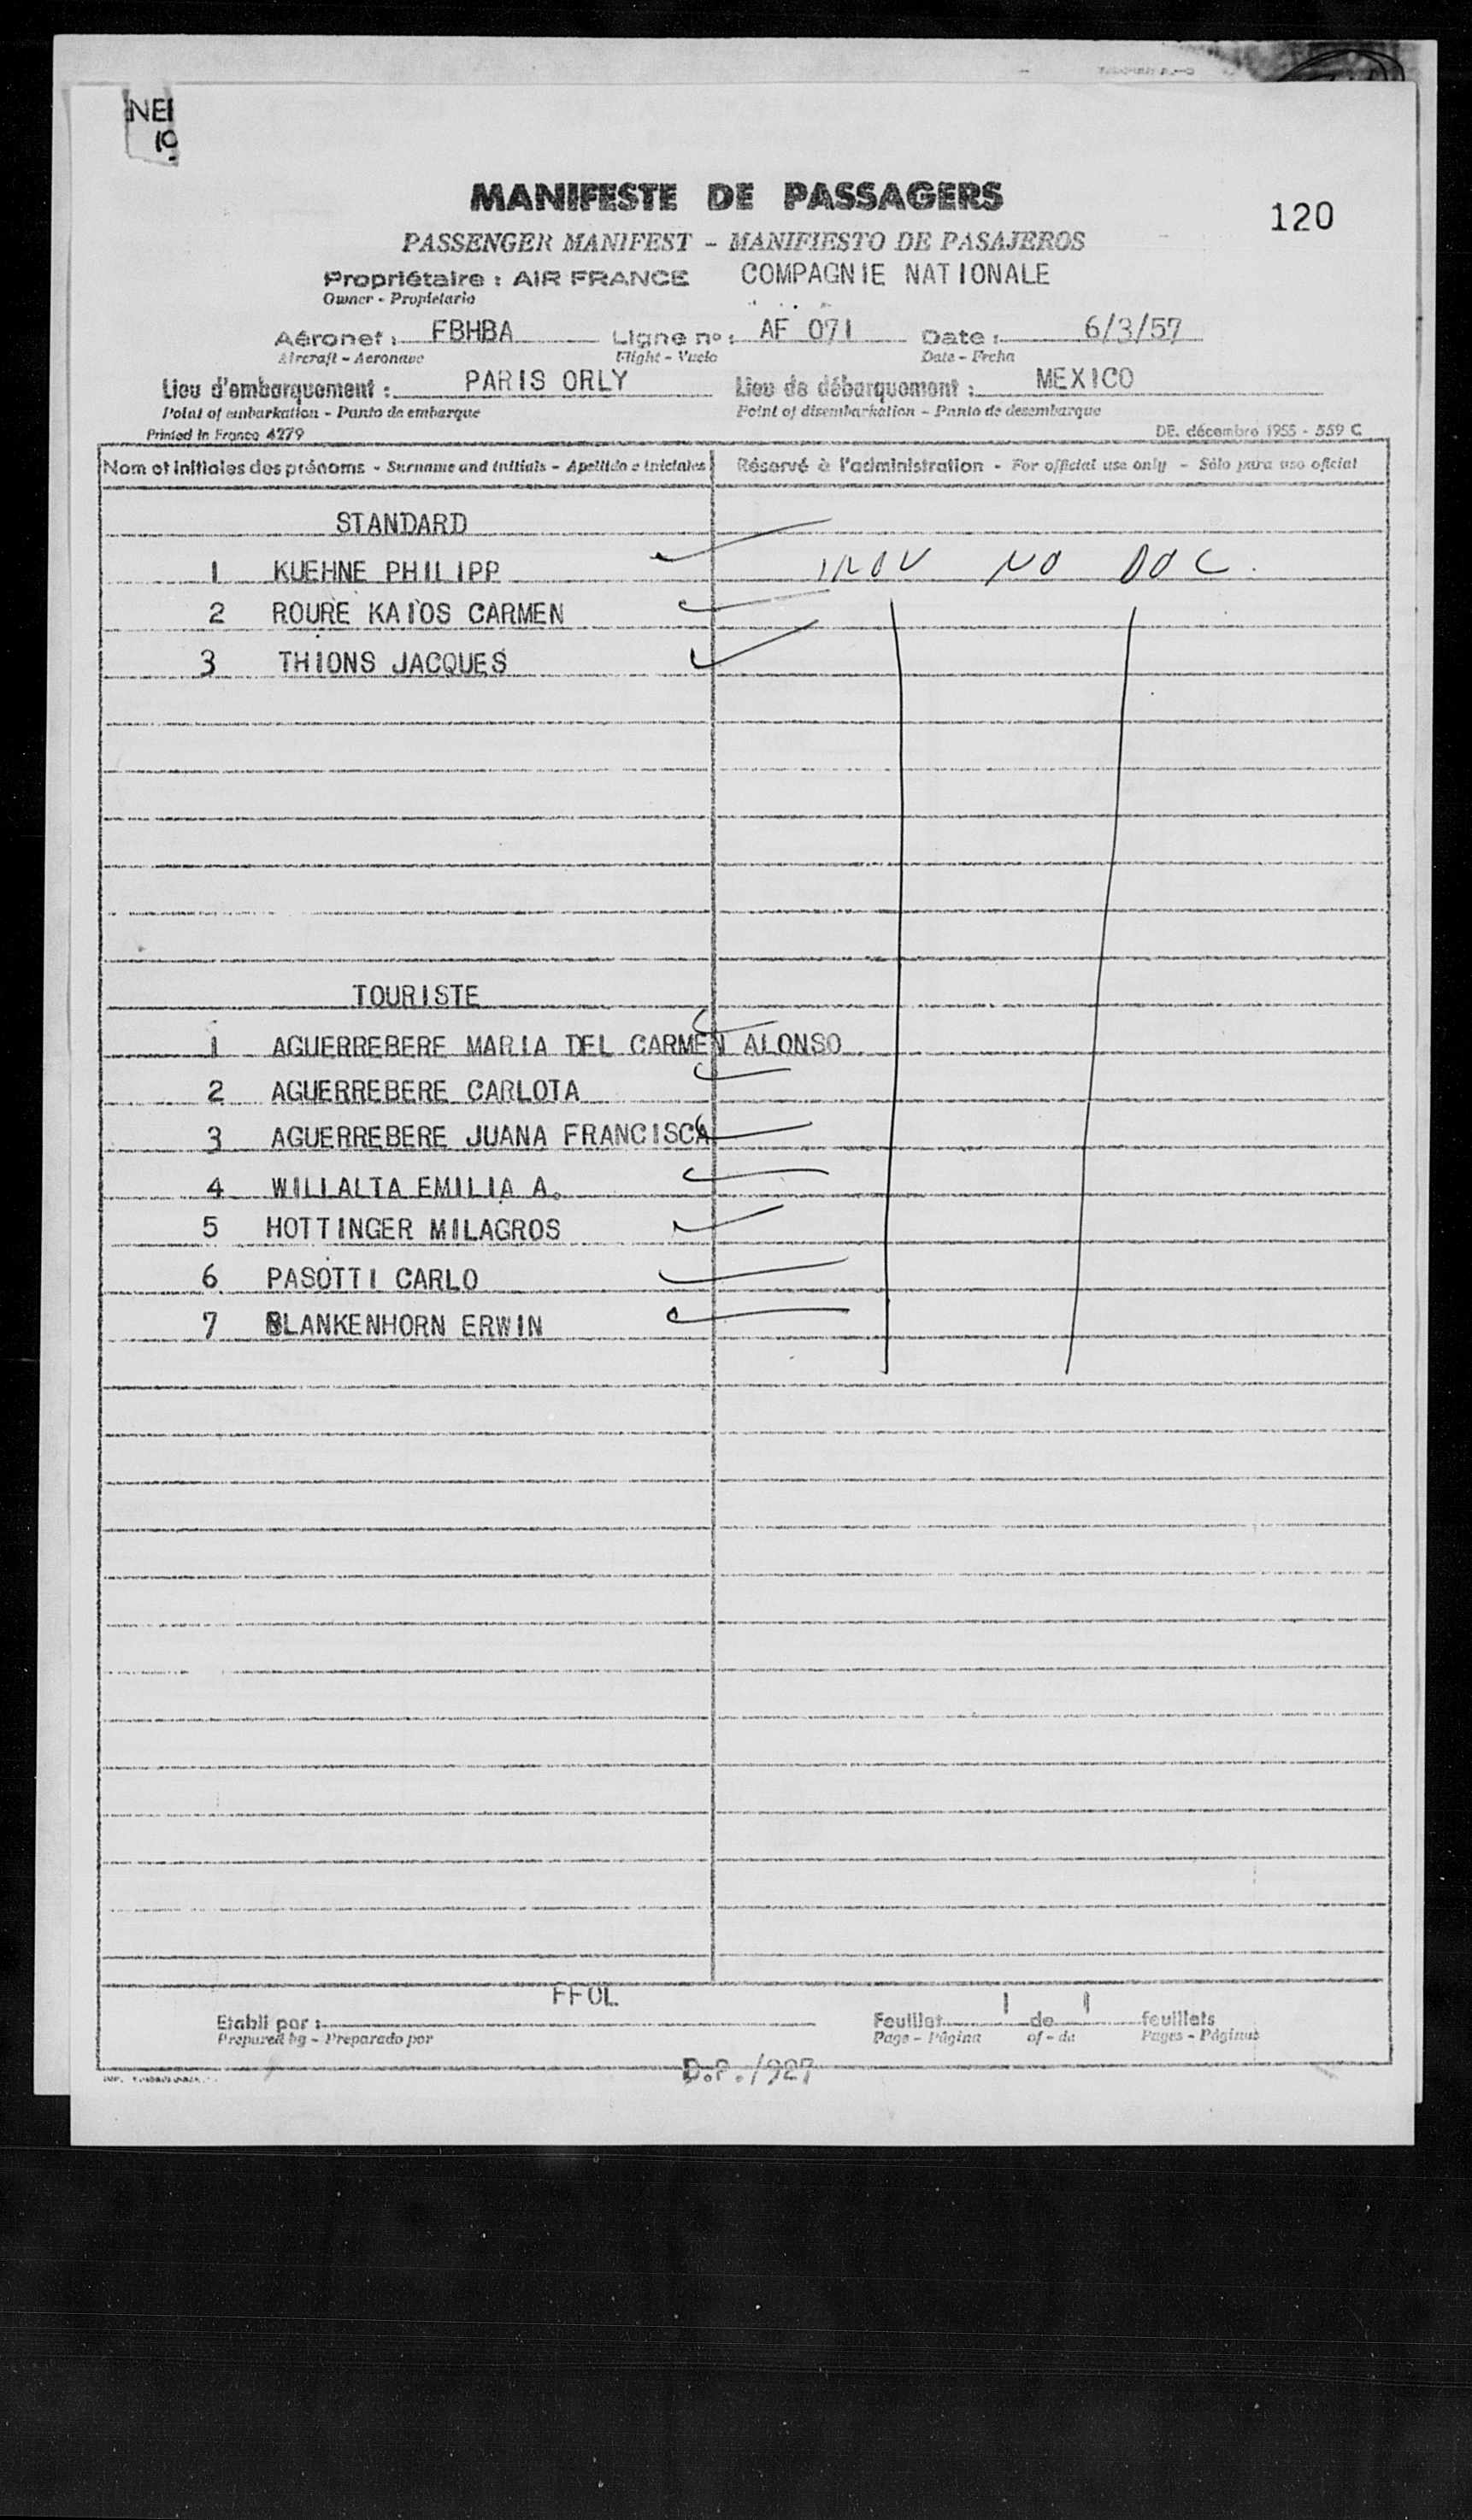 NEI
10
MANIFESTE DE PASSAGERS
120
PASSENGER MANIFEST - MANIFIESTO DE PASAJEROS
Propriétaire : AIR FRANCE COMPAGNIE NATIONALE
Owner - Propietario
Aéronef : FBHBA Ligne nº : AF 071 Date : 6/3/57
Aircraft - Aeronave Flight - Vuelo Date - Fecha
Lieu d'embarquement : PARIS ORLY Lieu de débarquement : MEXICO
Point of embarkation - Punto de embarque Point of disembarkation - Punto de desembarque
Printed in France 4279 DE. décembre 1955 - 559 C
Nom et initiales des prénoms - Surname and initials - Apellido e iniciales Réservé à l'administration - For official use only - Sólo para uso oficial
STANDARD
1 KUEHNE PHILIPP NO DOC.
2 ROURE KAIOS CARMEN
3 THIONS JACQUES
TOURISTE
1 AGUERREBERE MARIA DEL CARMEN ALONSO
2 AGUERREBERE CARLOTA
3 AGUERREBERE JUANA FRANCISCA
4 WILLALTA EMILIA A.
5 HOTTINGER MILAGROS
6 PASOTTI CARLO
7 BLANKENHORN ERWIN
FFOL
Etabli par : Feuillet 1 de 1 feuillets
Prepared by - Preparado por Page - Página of - de Pages - Páginas
D.P./927